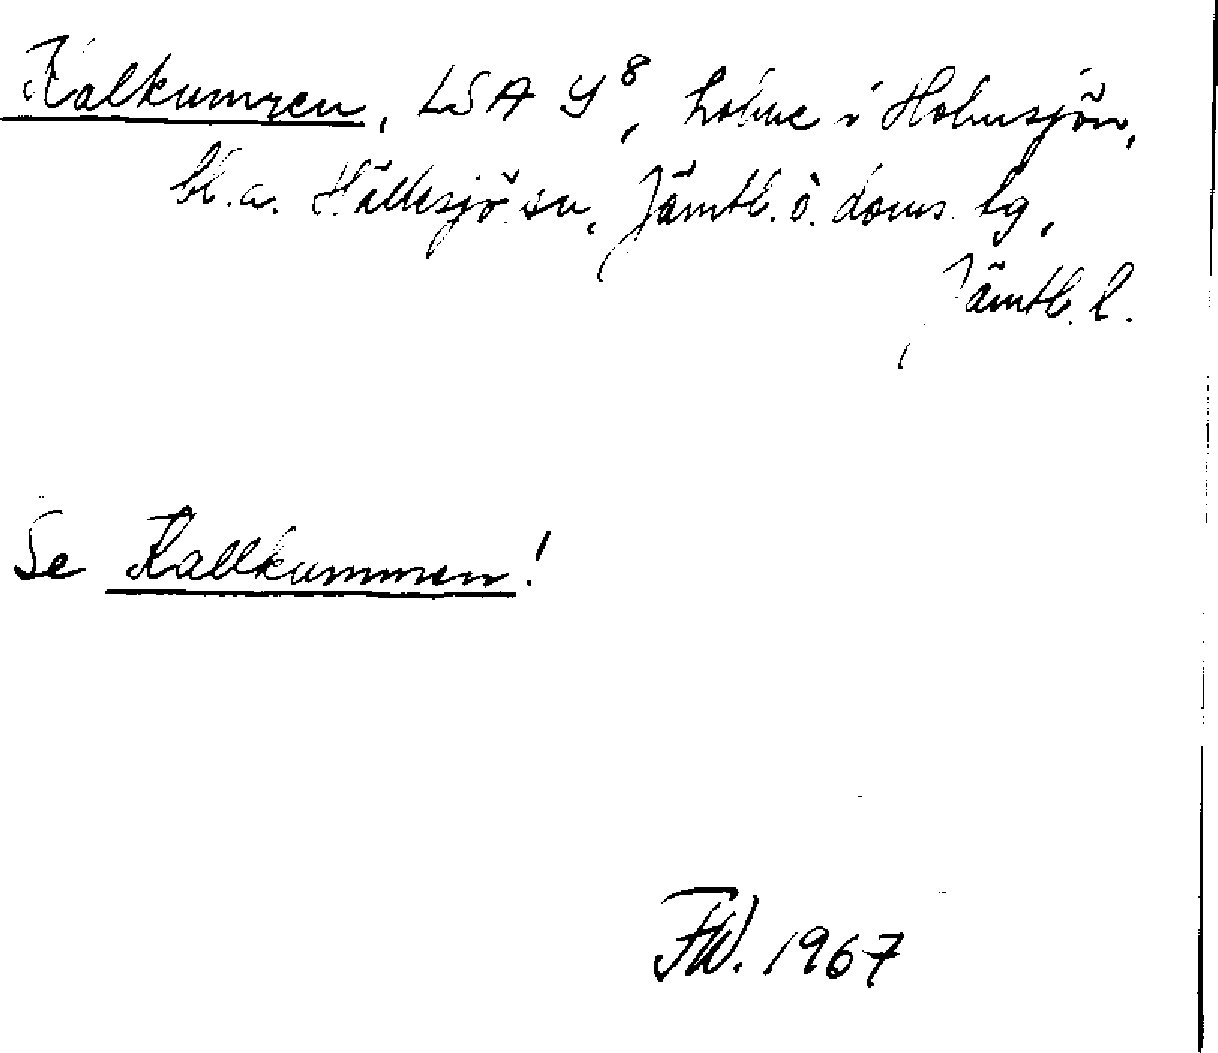 Kalkumren, LSA Y⁸, holme i Holmsjön,
bl.a. Hällesjö sn, Jämtl. ö. doms. lg,
Jämtl. l.
Se Kallkummen!
FW. 1967